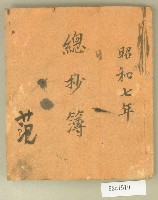 昭和七年
總抄簿
范